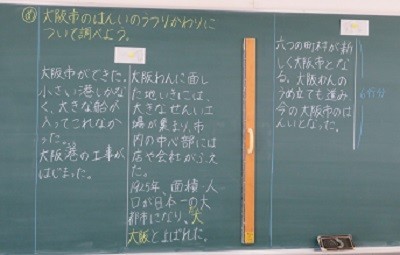 め 大阪市のはんいのうつりかわりに
ついて調べよう。
大阪市ができた。
小さい港しかな
く、大きな船が
入ってこれなか
った。
大阪港の工事が
はじまった。
大阪わんに面し
た地いきには、
大きなせんい工
場が集まり、市
内の中心部には
店や会社がふえ
た。
1925年、面積・人
口が日本一の大
都市になり、大
大阪とよばれた。
六つの町村が新
しく大阪市とな
る。大阪わんの
うめ立ても進み
今の大阪市のは
んいとなった。